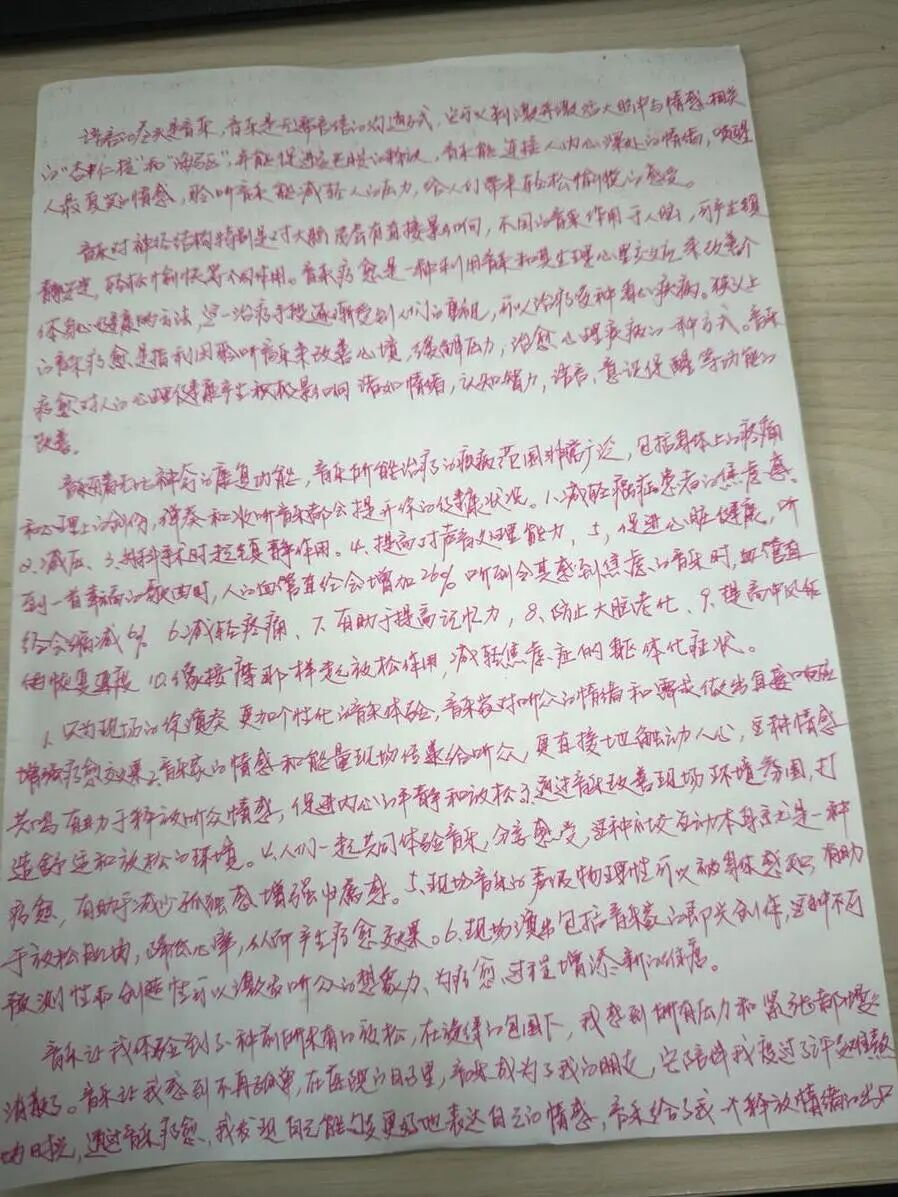 语言的尽头是音乐，音乐是无需言语的沟通方式，它可以刺激并激活大脑中与情感相关
的"杏仁核"和"海马区"，并能促进多巴胺的释放，音乐能连接人内心深处的情绪，唤醒
人最真实的情感，聆听音乐能减轻人的压力，给人们带来轻松愉悦的感受。
音乐对神经结构特别是对大脑皮层有直接影响，不同的音乐作用于人脑，可产生镇
静、轻松、愉快等不同作用。音乐疗愈是一种利用音乐和其生理心里之效应来改善个
体身心健康的方法，这一治疗手段逐渐受到人们的重视，可以治疗多种身心疾病。狭义上
的音乐疗愈是指利用聆听音乐来改善心境，缓解压力，治愈心理疾病的一种方式。音乐
疗愈对人的心理健康产生积极影响诸如情绪，认知智力，语言，意识促醒等功能的
改善。
音乐有着无比神奇的康复功能，音乐所能治疗的疾病范围非常广泛，包括身体上的疼痛
和心理上的创伤，弹奏和收听音乐都会提升你的健康状况。1、减轻癌症患者的焦虑感。
2、减压、3、外科手术时起镇静作用。4、提高对声音处理能力，5，促进心脏健康，听
到一首幸福的歌曲时，人的血管直径会增加26% 听到令其感到焦虑的音乐时，血管直
径会缩减6% 6、减轻疼痛、7、有助于提高记忆力，8、防止大脑老化、9、提高中风后
的恢复速度 10、像按摩那样起放松作用，减轻焦虑症的躯体化症状。
1、只为现场的你演奏 更加个性化的音乐体验，音乐家对听众的情绪和需求做出直接回应
增强疗愈效果2、音乐家的情感和能量现场传递给听众，更直接地触动人心，这种情感
共鸣有助于释放听众情感，促进内心的平静和放松3、通过音乐改善现场环境氛围，打
造舒适和放松的环境。4、人们一起共同体验音乐，分享感受，这种社交互动本身就是一种
疗愈，有助于减少孤独感增强归属感。5、现场音乐的声波物理性可以被身体感知，有助
于放松肌肉，降低心率，从而产生疗愈效果。6、现场演出包括音乐家的即兴创作，这种不可
预测性和创造性可以激发听众的想象力、为疗愈过程增添新的维度。
音乐让我体验到了一种前所未有的放松，在旋律的包围下，我感到所有压力和紧张都
消散了。音乐让我感到不再孤单，在的日子里，音乐成为了我的朋友，它陪伴我度过了许多艰难
的时光，通过音乐疗愈，我发现自己能够更好地表达自己的情感，音乐给了我一个释放情绪的出口